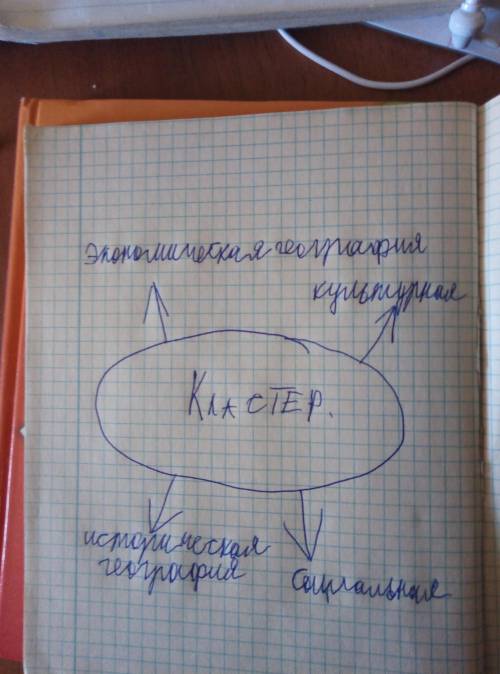 экономическая география
культурная
Кластер.
историческая
география
социальная